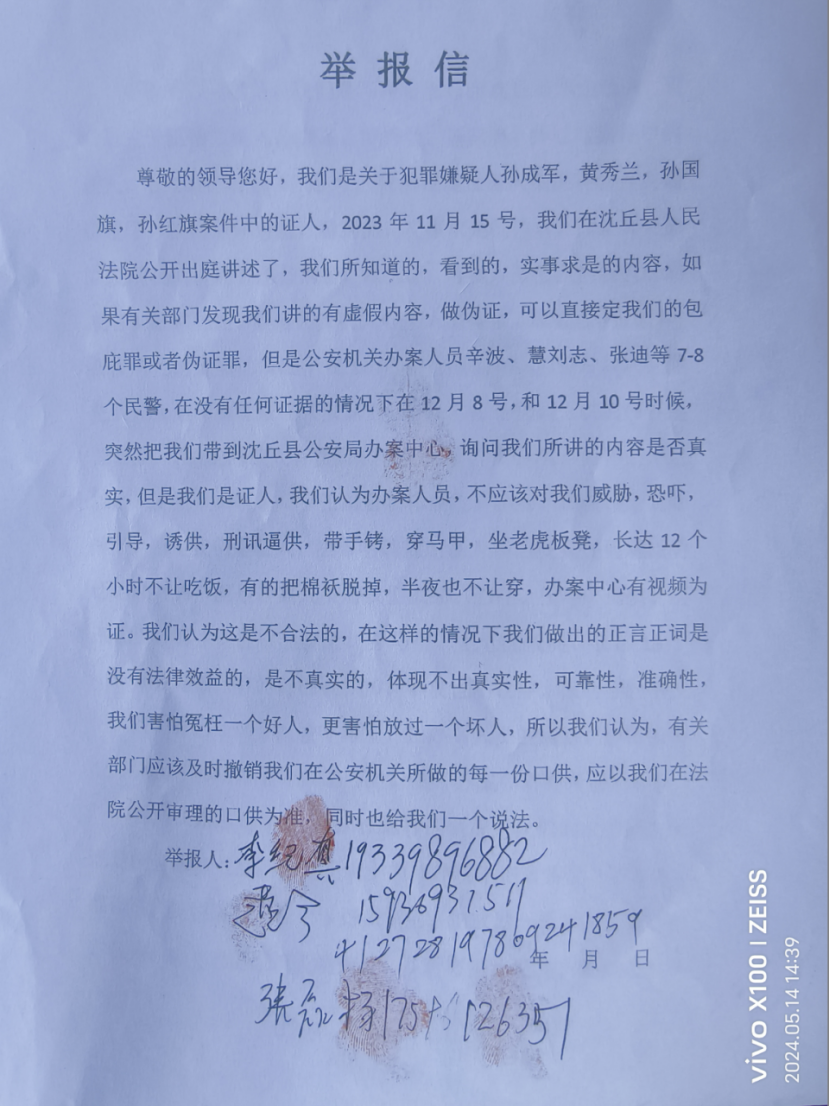 举报信
尊敬的领导您好，我们是关于犯罪嫌疑人孙成军，黄秀兰，孙国
旗，孙红旗案件中的证人，2023 年 11 月 15 号，我们在沈丘县人民
法院公开出庭讲述了，我们所知道的，看到的，实事求是的内容，如
果有关部门发现我们讲的有虚假内容，做伪证，可以直接定我们的包
庇罪或者伪证罪，但是公安机关办案人员辛波、慧刘志、张迪等 7-8
个民警，在没有任何证据的情况下在 12 月 8 号，和 12 月 10 号时候，
突然把我们带到沈丘县公安局办案中心。询问我们所讲的内容是否真
实，但是我们是证人，我们认为办案人员，不应该对我们威胁，恐吓，
引导，诱供，刑讯逼供，带手铐，穿马甲，坐老虎板凳，长达 12 个
小时不让吃饭，有的把棉袄脱掉，半夜也不让穿，办案中心有视频为
证。我们认为这是不合法的，在这样的情况下我们做出的正言正词是
没有法律效益的，是不真实的，体现不出真实性，可靠性，准确性，
我们害怕冤枉一个好人，更害怕放过一个坏人，所以我们认为，有关
部门应该及时撤销我们在公安机关所做的每一份口供，应以我们在法
院公开审理的口供为准，同时也给我们一个说法。
举报人：李纪真 19339896882
15936931511
4127281978069241859
年 月 日
张磊
vivo X100 | ZEISS
2024.05.14 14:39